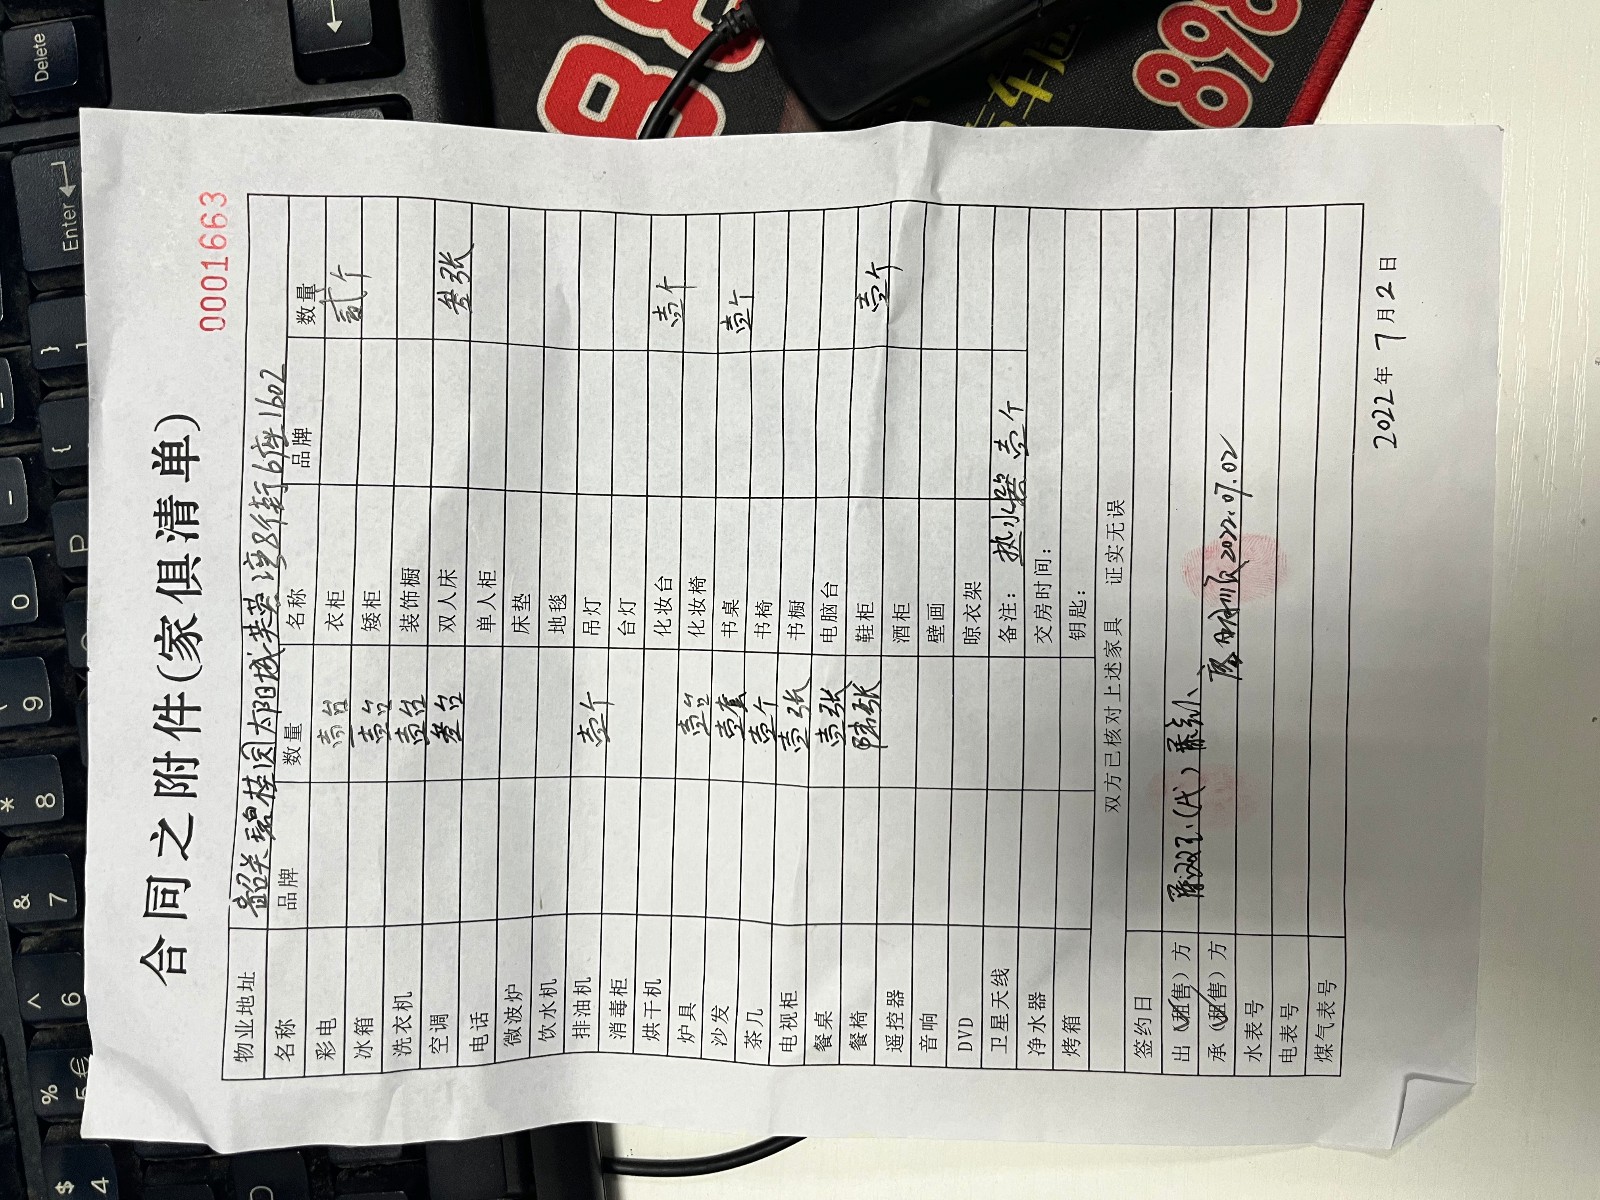 0001663
合同之附件(家俱清单)
物业地址 韶关碧桂园太阳城芙蓉湾 街6座1602
名称 品牌 数量 名称 品牌 数量
彩电 壹台 衣柜 贰个
冰箱 壹台 矮柜
洗衣机 壹台 装饰橱
空调 叁台 双人床 叁张
电话 单人柜
微波炉 床垫
饮水机 地毯
排油机 壹个 吊灯
消毒柜 台灯
烘干机 化妆台 壹个
炉具 壹台 化妆椅
沙发 壹套 书桌 壹个
茶几 壹个 书椅
电视柜 壹张 书橱
餐桌 壹张 电脑台
餐椅 陆张 鞋柜 壹个
遥控器 酒柜
音响 壁画
DVD 晾衣架
卫星天线 备注: 热水器 壹个
净水器 交房时间:
烤箱 钥匙:
双方已核对上述家具 证实无误
签约日
出(租售)方 (代)
承(租售)方 2022.07.02
水表号
电表号
煤气表号
2022年7月2日